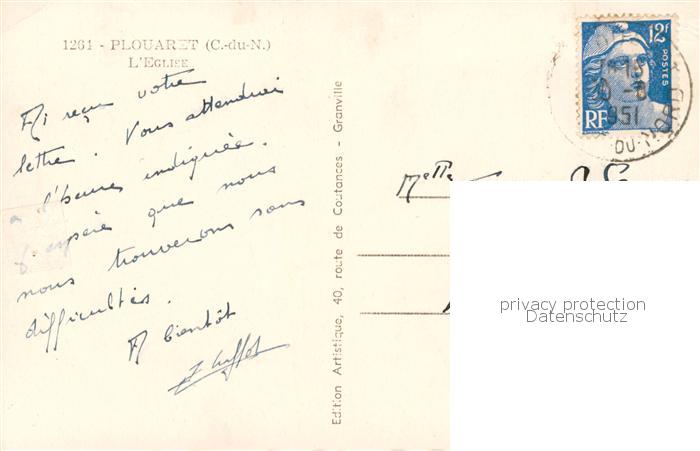 1261 - PLOUARET (C.-du-N.)
L'EGLISE
Ai reçu votre
lettre. Vous attendrai
à l'heure indiquée.
J'espère que nous
nous trouverons sans
difficultés.
A bientôt
Edition Artistique, 40, route de Coutances - Granville
12f
POSTES
RF
951
DU-NORD
Melle
privacy protection
Datenschutz